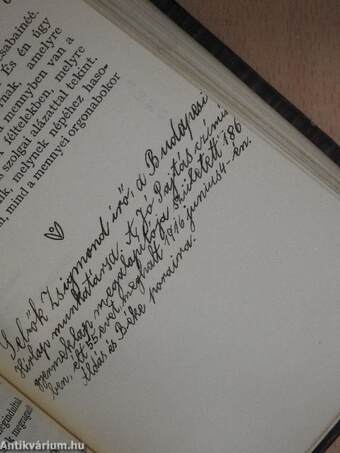 csabainéé.
És én úgy
rnak, amelyre
mennyben van a
föltételekben, melyre
szolgái alázattal tekint.
nk, melynek népéhez haso-
n, mind a mennyei orgonabokor
Sebők Zsigmond író, a Budapesti
Hírlap munkatársa. A Jó Pajtás című
gyermeklap megalapítója született 186
ben, élt 55 évet meghalt 1916 június 4-én.
Áldás és Béke poraira.
megindultá
Antikvárium.hu